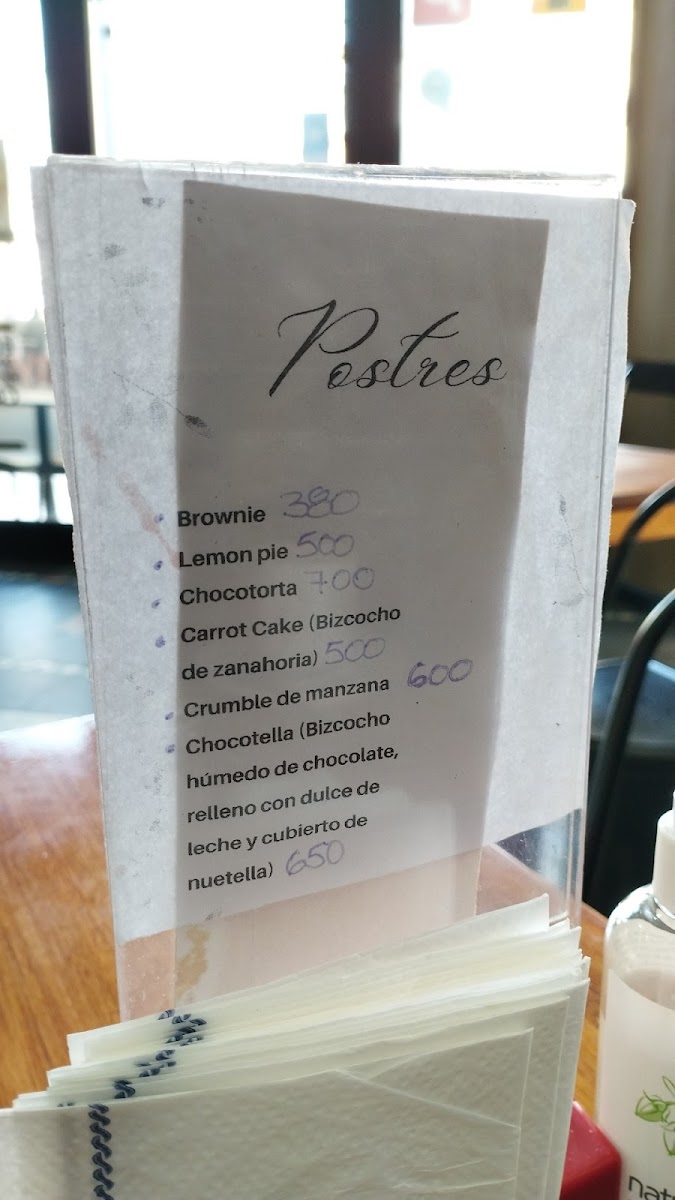 Postres
Brownie 380
Lemon pie 500
Chocotorta 700
Carrot Cake (Bizcocho
de zanahoria) 500
Crumble de manzana 600
Chocotella (Bizcocho
húmedo de chocolate,
relleno con dulce de
leche y cubierto de
nuetella) 650